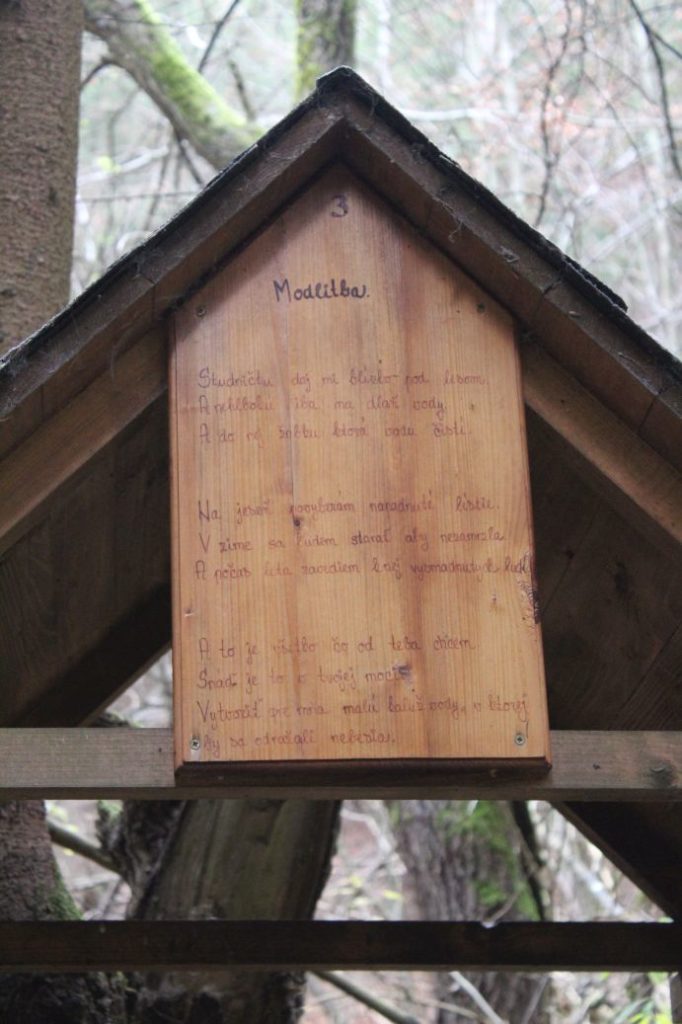 3
Modlitba.
Studničku daj mi blízko pod lesom.
A nehlbokú iba na dlaň vody.
A do nej žabku ktorá vodu čistí.
Na jeseň povyberám napadnuté lístie.
V zime sa budem starať aby nezamrzla
A počas leta zavediem k nej vysmädnutých ľudí
A to je všetko čo od teba chcem
Snáď je to v tvojej moci
Vytvoriť pre mňa malú kaluž vody, v ktorej
by sa odrážali nebesia.